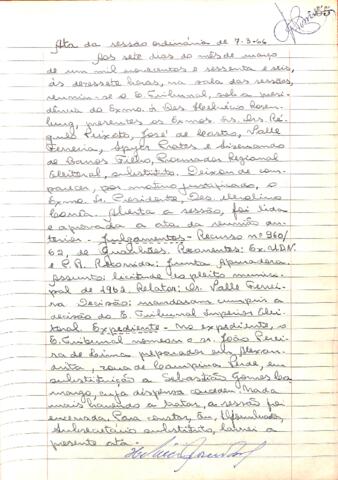 Ata da sessão ordinária de 7-3-66
Aos sete dias do mês de março
de um mil novecentos e sessenta e seis,
às dezessete horas, na sala das sessões,
reuniu-se o E. Tribunal, sob a presi-
dência do Exmo. Sr. Des. Helvécio Rosen-
burg, presentes os Exmos. Srs. Drs. Ré-
gulo Peixoto, José de Castro, Valle
Ferreira, Cyps Prates e
de Barros Filho, Procurador Regional
Eleitoral, substituto. Deixou de com-
parecer, por motivo justificado, o
Exmo. Sr. Presidente, Des. Merolino
Corrêa. Aberta a sessão, foi lida
e aprovada a ata da reunião an-
terior. - Julgamentos - Recurso nº 960/
62, de Guanhães. Recorrentes: Ex. UDN
e P.R. Recorrida: Junta Apuradora.
Assunto: licitude do pleito munici-
pal de 1962. Relator: Dr. Valle Ferrei-
ra. Decisão: mandaram cumprir a
decisão do E. Tribunal Superior Elei-
toral. Expediente - No expediente, o
E. Tribunal nomeou o sr. João Perei-
ra de Lima preparador em Alexan-
drita, zona de Campina Verde, em
substituição a Sebastião Gomes Ca-
margo, cuja dispensa concedeu. Nada
mais havendo a tratar, a sessão foi
encerrada. Para constar, Eu,
Subsecretário substituto, lavrei a
presente ata.